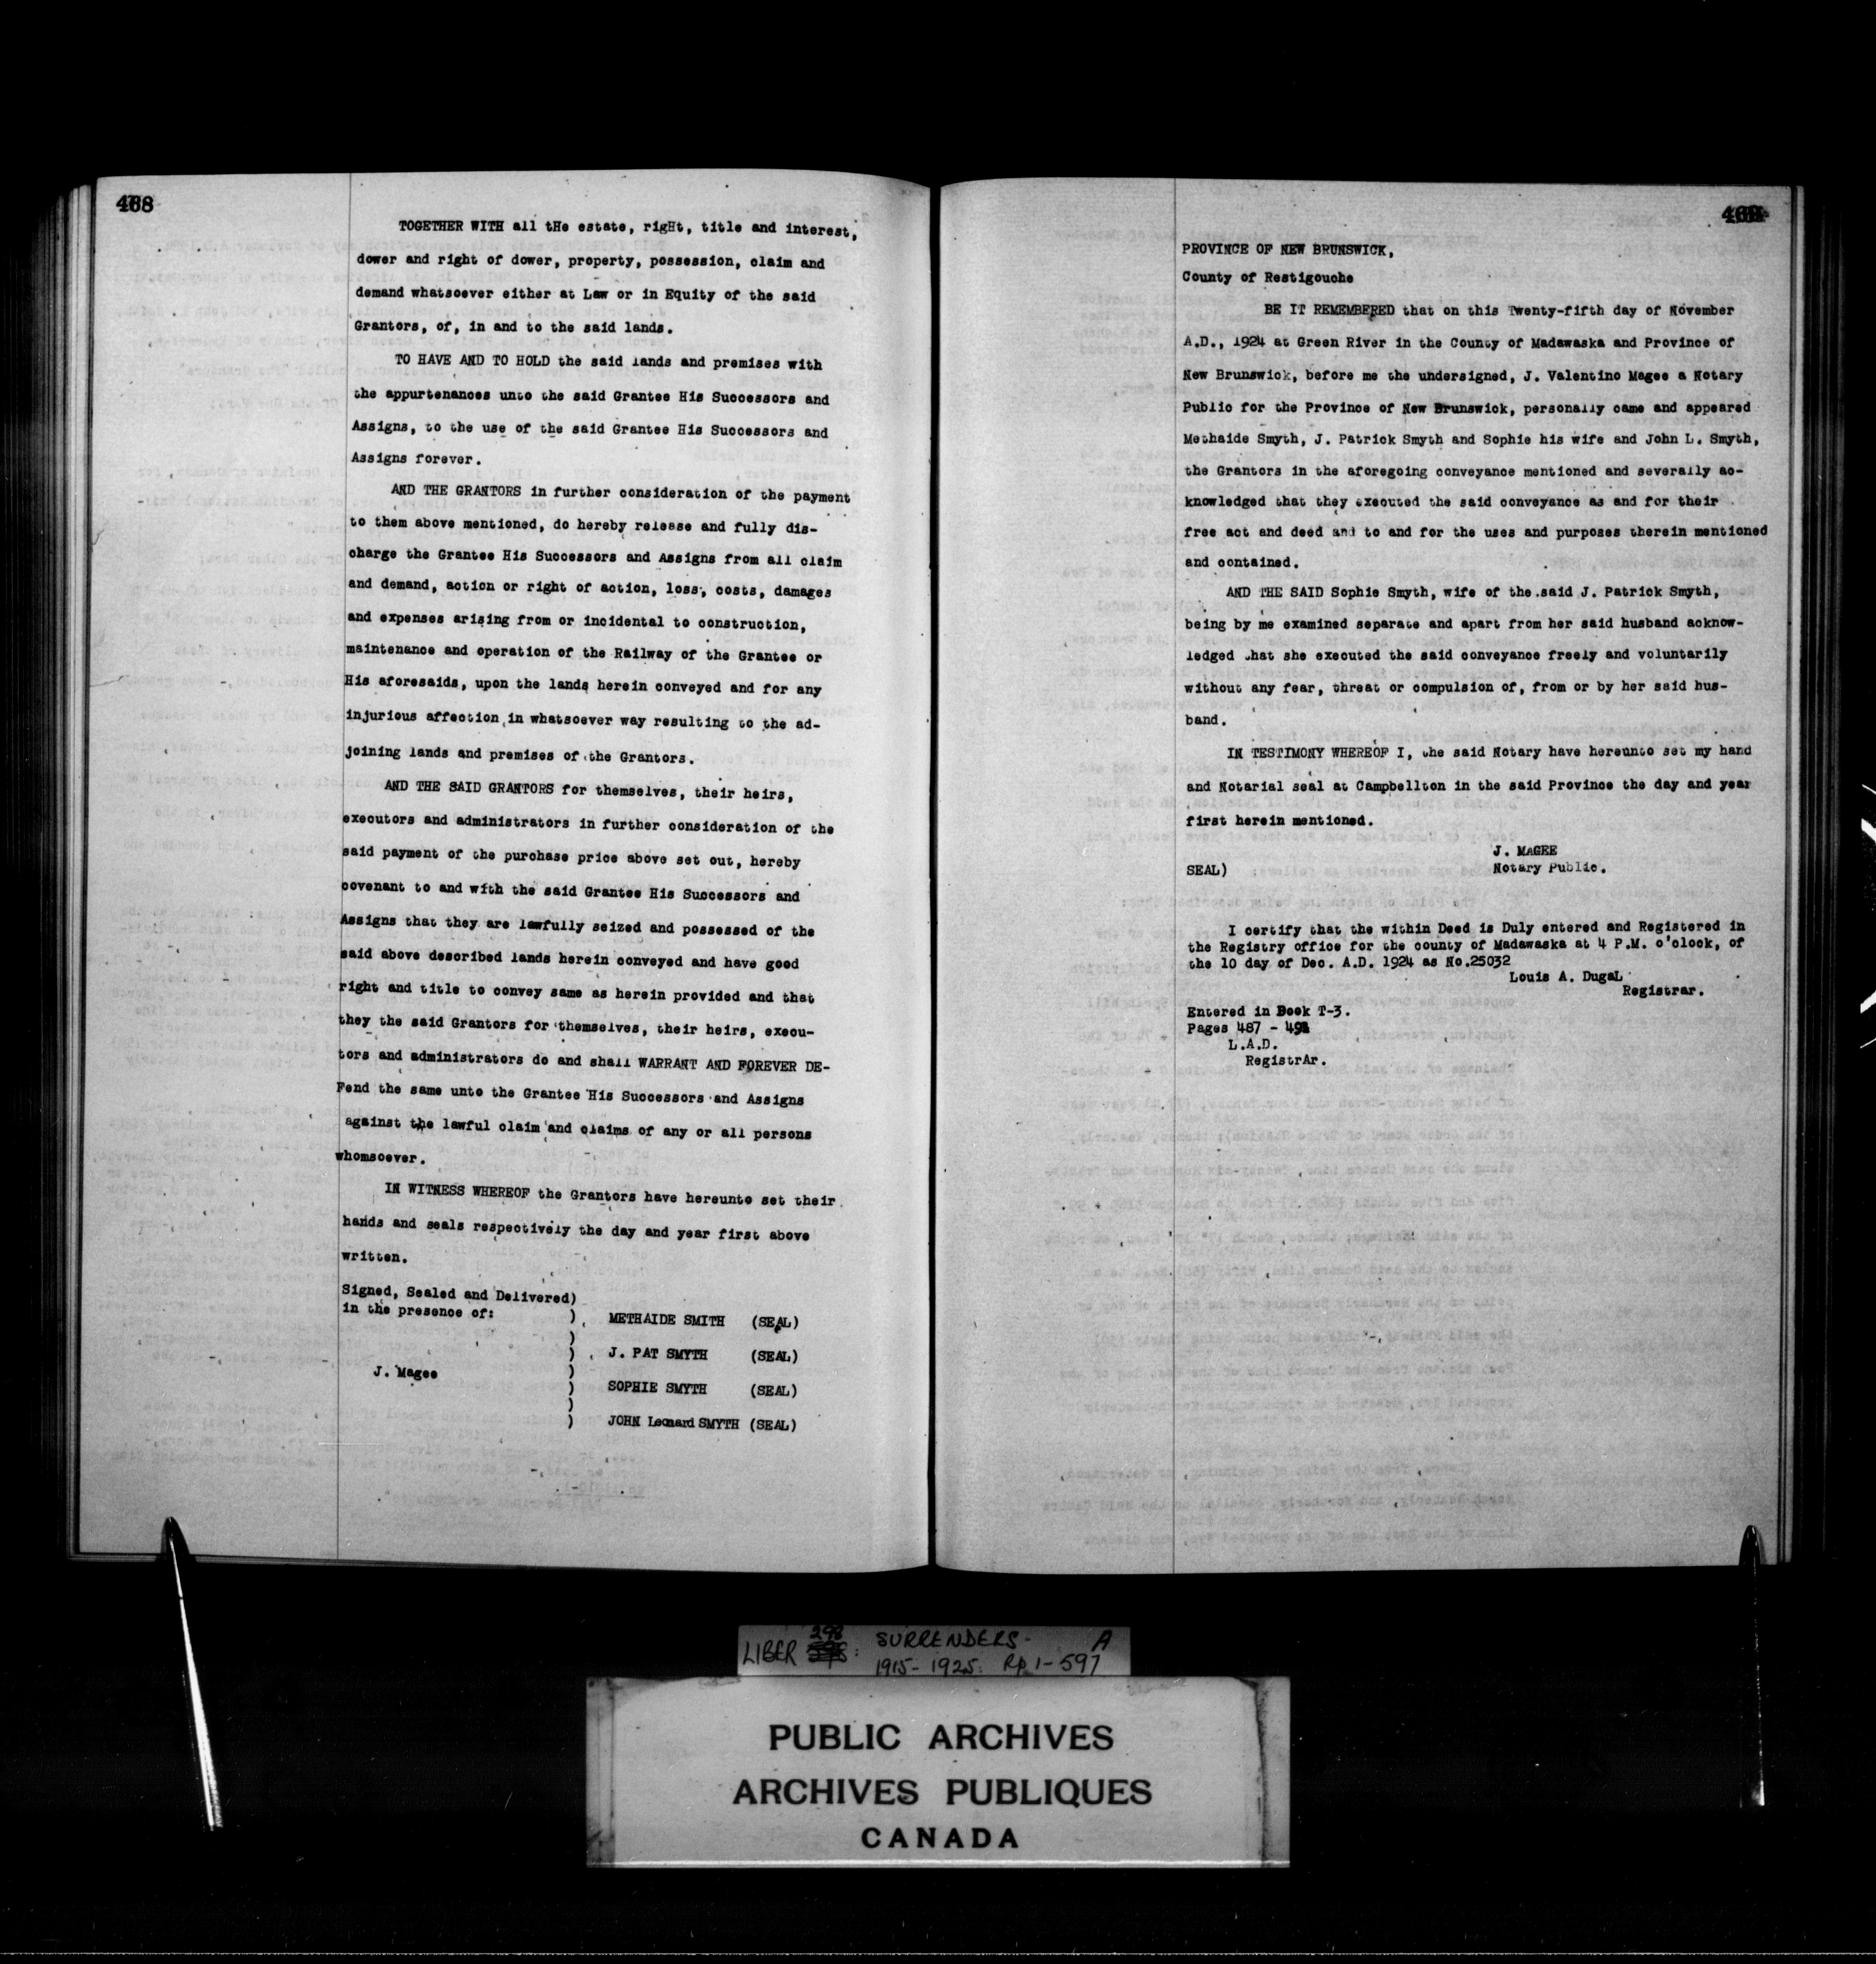 468
TOGETHER WITH all tHe estate, rigHt, title and interest,
dower and right of dower, property, possession, claim and
demand whatsoever either at Law or in Equity of the said
Grantors, of, in and to the said lands.
TO HAVE AND TO HOLD the said lands and premises with
the appurtenances unto the said Grantee His Successors and
Assigns, to the use of the said Grantee His Successors and
Assigns forever.
AND THE GRANTORS in further consideration of the payment
to them above mentioned, do hereby release and fully dis-
charge the Grantee His Successors and Assigns from all claim
and demand, action or right of action, loss, costs, damages
and expenses arising from or incidental to construction,
maintenance and operation of the Railway of the Grantee or
His aforesaids, upon the lands herein conveyed and for any
injurious affection in whatsoever way resulting to the ad-
joining lands and premises of the Grantors.
AND THE SAID GRANTORS for themselves, their heirs,
executors and administrators in further consideration of the
said payment of the purchase price above set out, hereby
covenant to and with the said Grantee His Successors and
Assigns that they are lawfully seized and possessed of the
said above described lands herein conveyed and have good
right and title to convey same as herein provided and that
they the said Grantors for themselves, their heirs, execu-
tors and administrators do and shall WARRANT AND FOREVER DE-
Fend the same unto the Grantee His Successors and Assigns
against the lawful claim and claims of any or all persons
whomsoever.
IN WITNESS WHEREOF the Grantors have hereunto set their
hands and seals respectively the day and year first above
written.
Signed, Sealed and Delivered)
in the presence of: ) METHAIDE SMITH (SEAL)
)
) J. PAT SMYTH (SEAL)
J. Magee )
) SOPHIE SMYTH (SEAL)
)
) JOHN Leonard SMYTH (SEAL)
PROVINCE OF NEW BRUNSWICK,
County of Restigouche
BE IT REMEMBERED that on this Twenty-fifth day of November
A.D., 1924 at Green River in the County of Madawaska and Province of
New Brunswick, before me the undersigned, J. Valentino Magee a Notary
Public for the Province of New Brunswick, personally came and appeared
Methaide Smyth, J. Patrick Smyth and Sophie his wife and John L. Smyth,
the Grantors in the aforegoing conveyance mentioned and severally ac-
knowledged that they executed the said conveyance as and for their
free act and deed and to and for the uses and purposes therein mentioned
and contained.
AND THE SAID Sophie Smyth, wife of the said J. Patrick Smyth,
being by me examined separate and apart from her said husband acknow-
ledged that she executed the said conveyance freely and voluntarily
without any fear, threat or compulsion of, from or by her said hus-
band.
IN TESTIMONY WHEREOF I, the said Notary have hereunto set my hand
and Notarial seal at Campbellton in the said Province the day and year
first herein mentioned.
J. MAGEE
SEAL) Notary Public.
I certify that the within Deed is Duly entered and Registered in
the Registry office for the county of Madawaska at 4 P.M. o'clock, of
the 10 day of Dec. A.D. 1924 as No.25032
Louis A. DugaL
Registrar.
Entered in Book T-3.
Pages 487 -
L.A.D.
RegistrAr.
LIBER 298 : SURRENDERS- A
1915-1925: Pp 1-597
PUBLIC ARCHIVES
ARCHIVES PUBLIQUES
CANADA